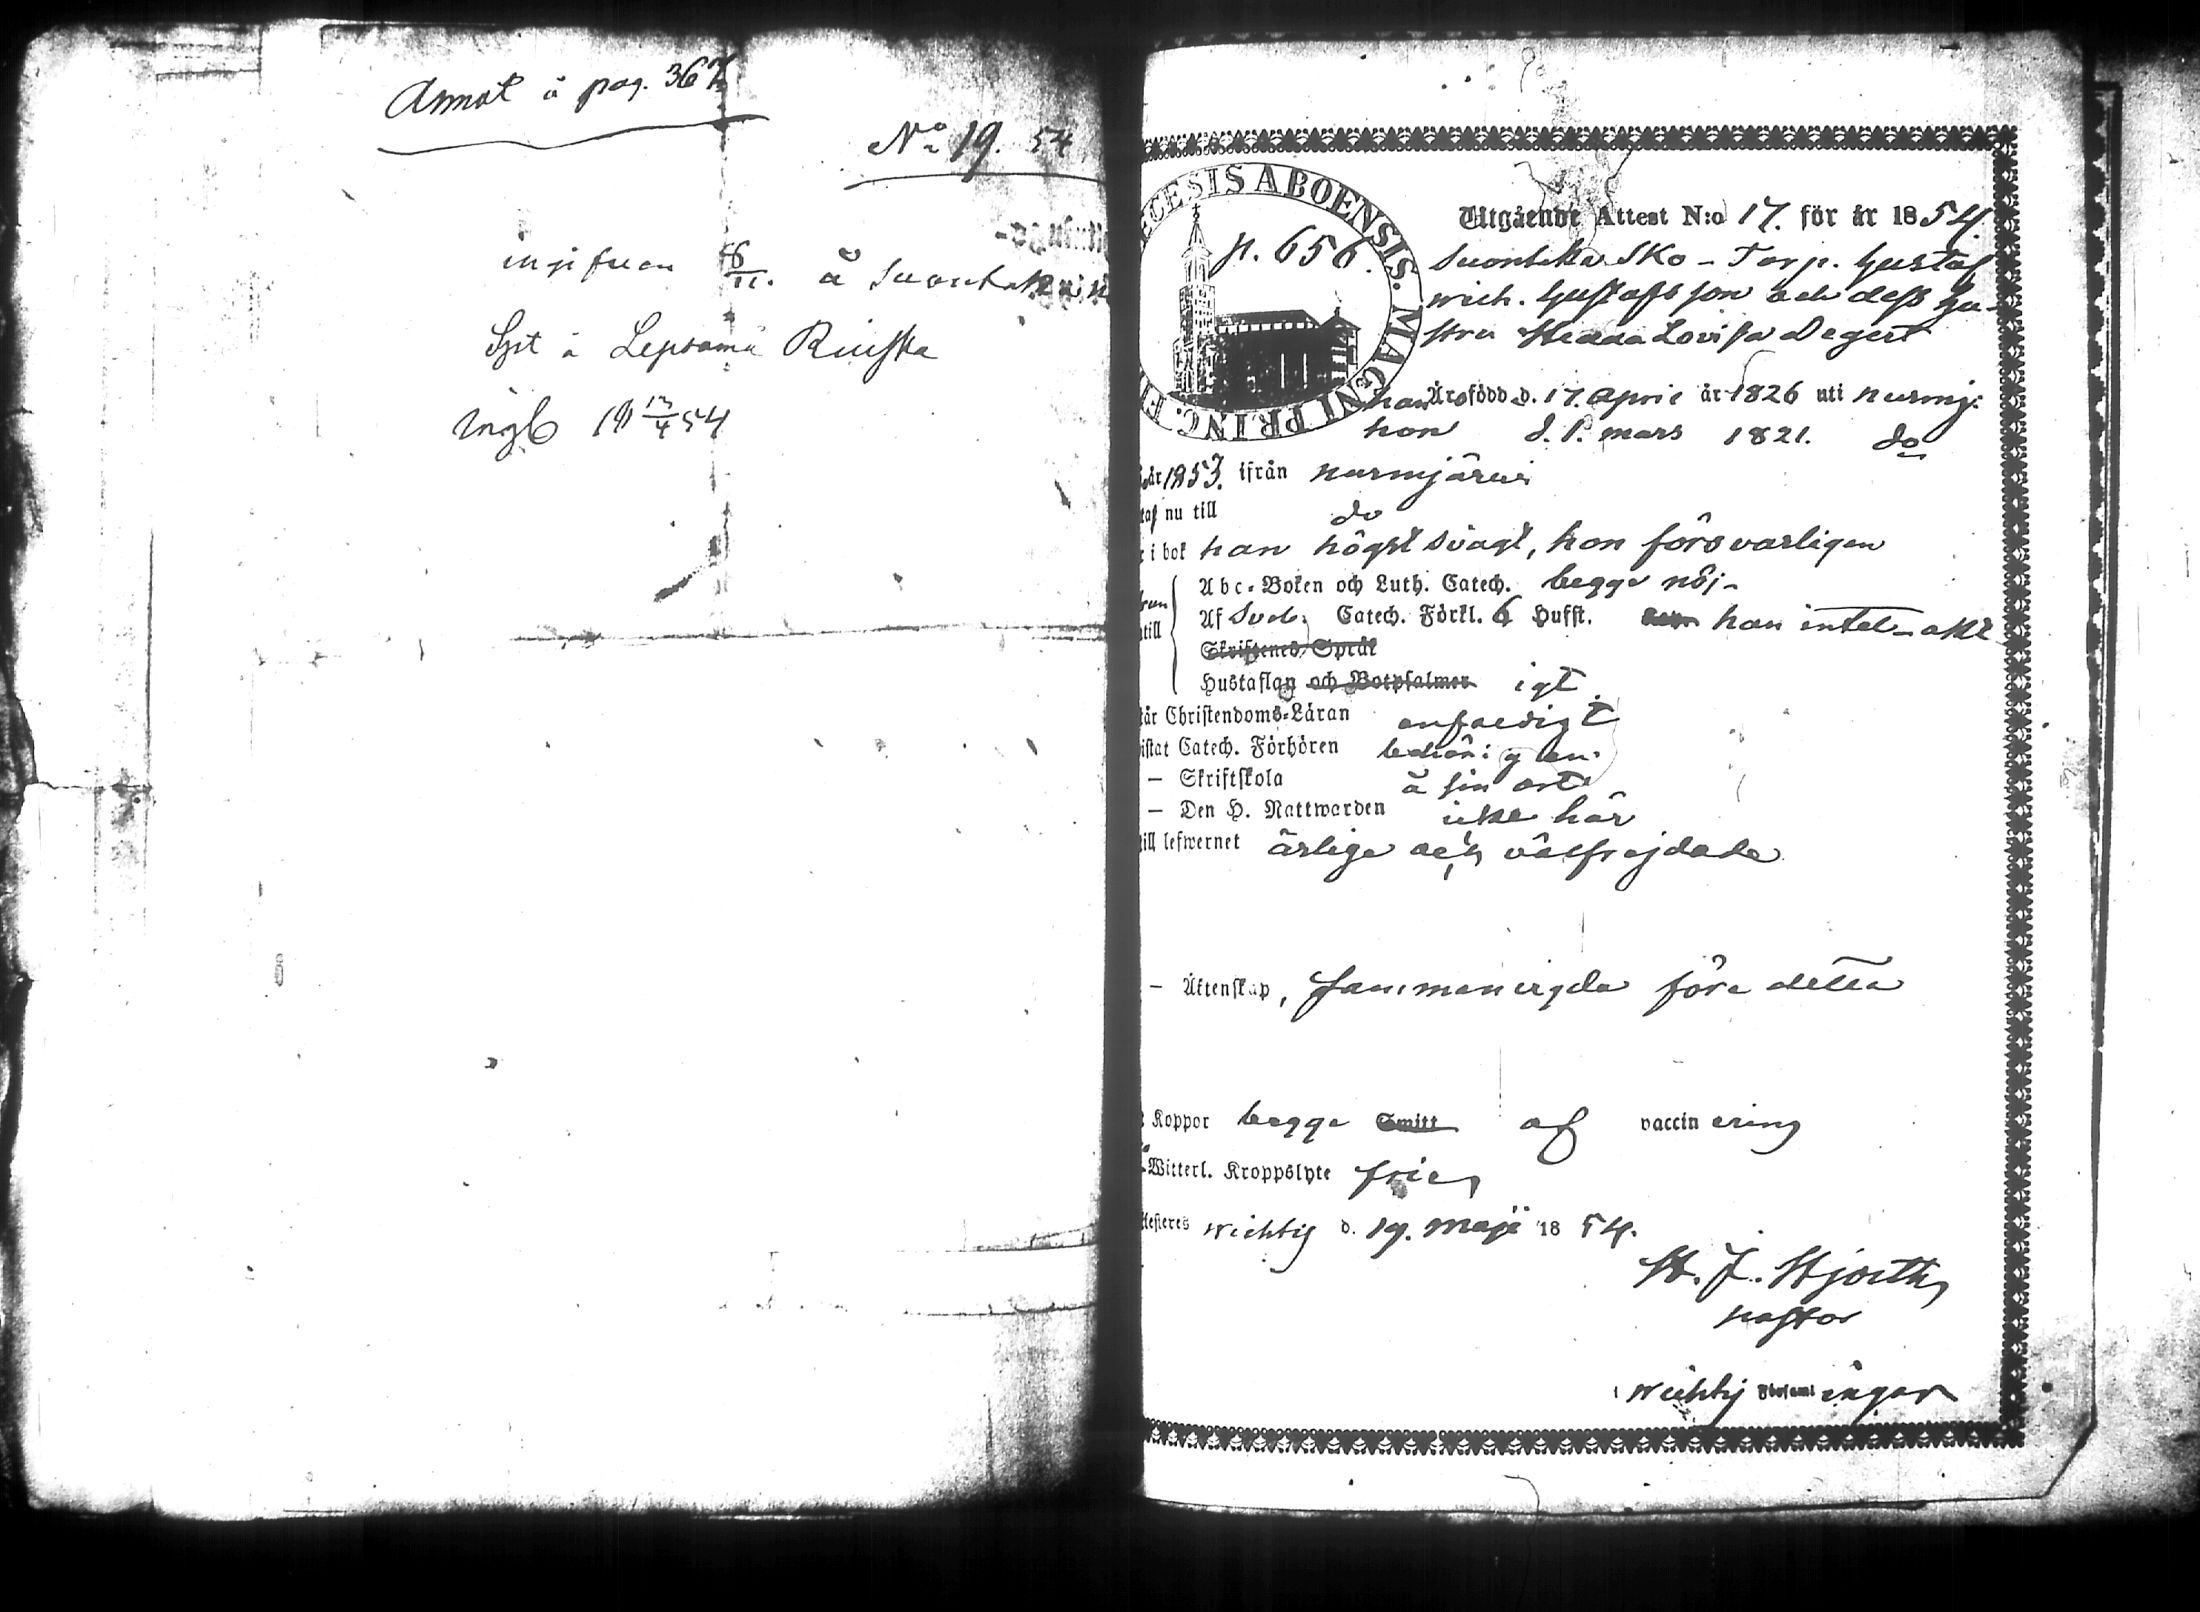 Annot å pag. 367
No 19. 54
6/11. å
å Lepsamä
13/4 54
ECESIS ABOENSIS. MAGNI PRINC. F
p. 656.
Utgående Attest N:o 17. för år 1854.
Suontaka Sko-Torp. Gustaf
Wich. Gustafsson och dess hu-
stru Hedda Lovisa Degert
han Äro född d. 17. April år 1826 uti Nurmj:
hon d. 1. Mars 1821. do
år 1853. ifrån Nurmjärvi
taß nu till do
i bok han högst svagt, hon försvarligen
Abc-Boken och Luth. Catech. begge nöj-
till Af Sveb. Catech. Förkl. 6 Hufst. han intet - akt
Skriftenes Språk
Hustaflan och Botpsalmer igt
år Christendoms-Läran enfaldigt
istat Catech. Förhören behörigen.
— Skriftskola å sin ort
— Den H. Nattwarden icke här
till lefwernet ärlige och välfrejdade
— Äktenskap, sammanvigda före detta
Koppor begge Smitt af vaccinering
Witterl. Kroppslyte frie
testeres Wichtis d. 19. Maji 1854.
H. J. Hjorth
Pastor
i Wichtis Församlingar